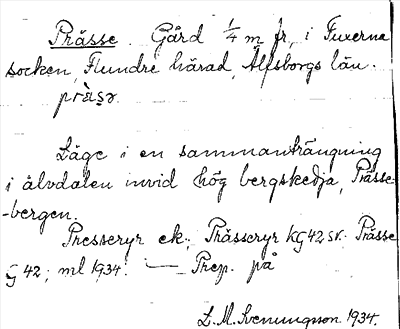 Prässe. Gård 1/4 m fr, i Fuxerna
socken, Flundre härad, Älfsborgs län.
prὰsə.
Läge i en sammanträngning
i älvdalen invid hög bergskedja, Prässe-
-bergen.
Presseryr ek; Prässeryr KG 42 sv. Prässe
G 42; ml 1934. — Prep. på
L. M. Svenungsson 1934.